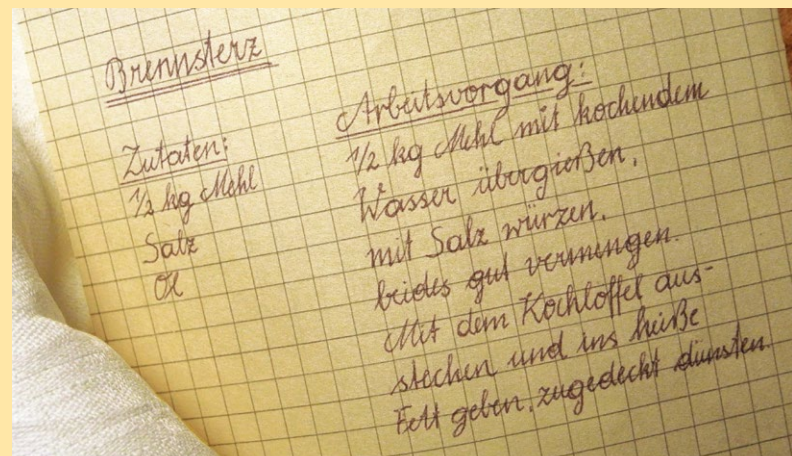 Brennsterz
Zutaten:
1/2 kg Mehl
Salz
Öl
Arbeitsvorgang:
1/2 kg Mehl mit kochendem
Wasser übergießen,
mit Salz würzen,
beides gut vermengen.
Mit dem Kochlöffel aus-
stechen und ins heiße
Fett geben, zugedeckt dünsten.